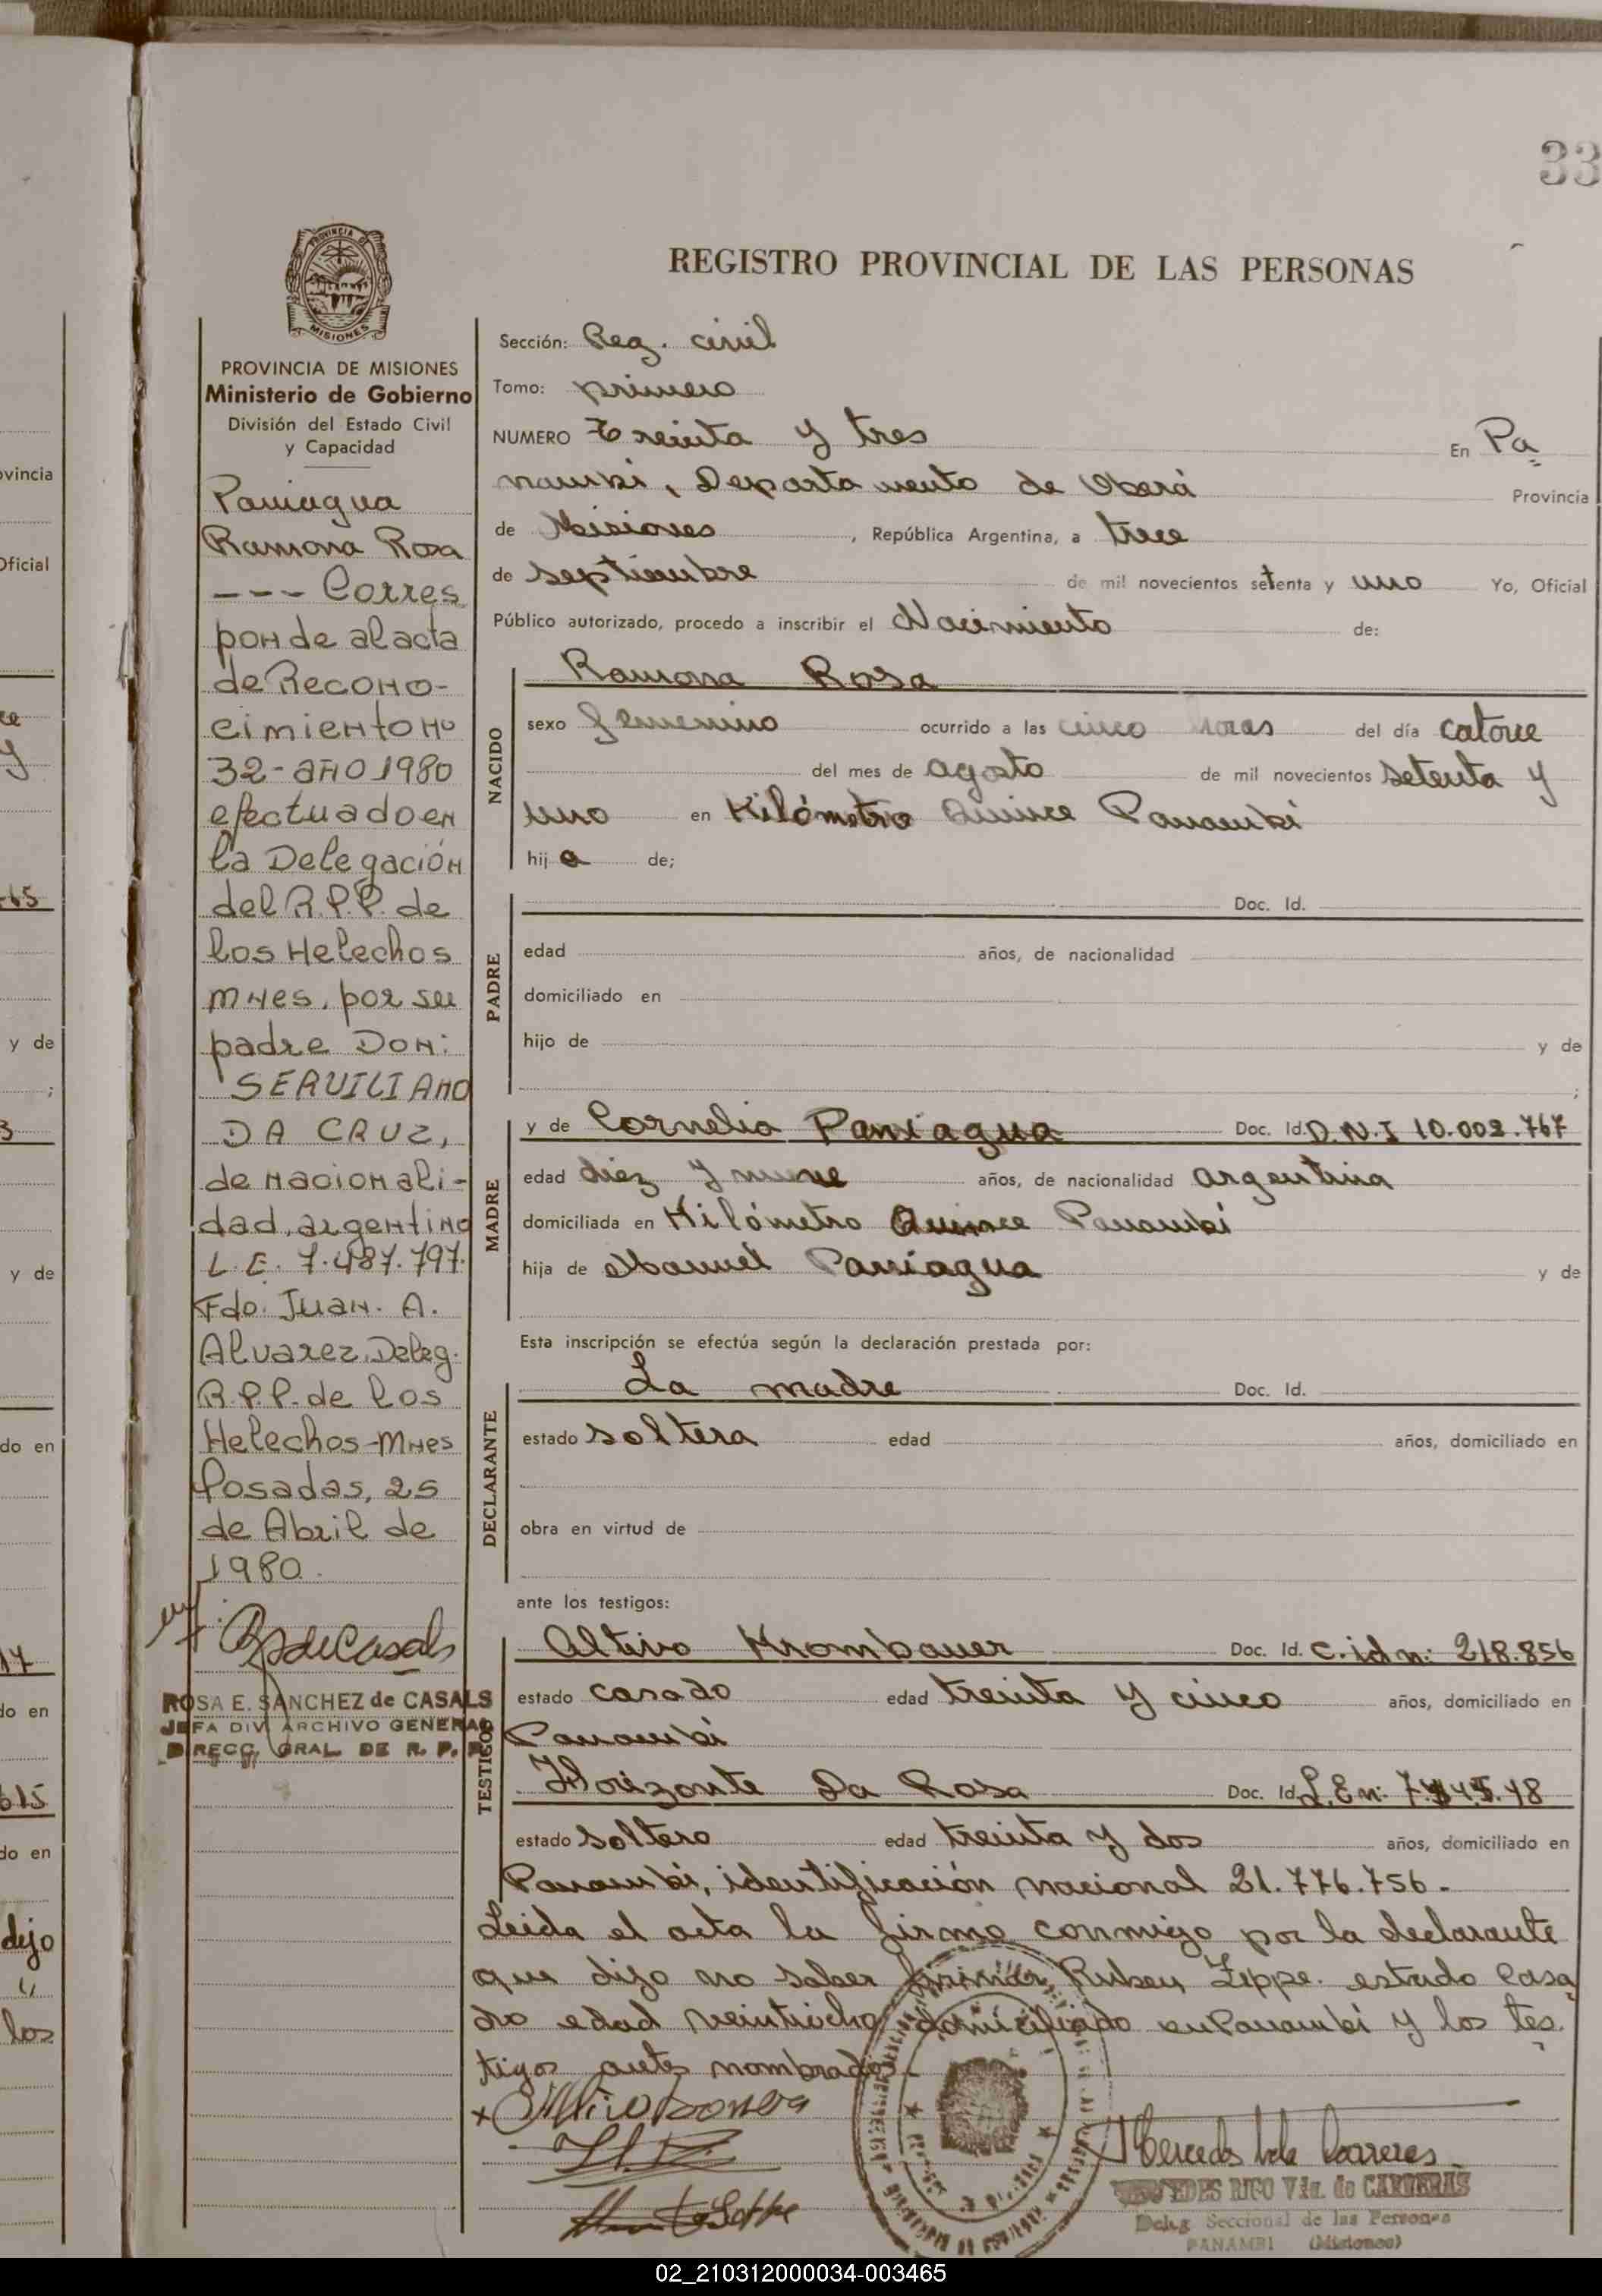 33
REGISTRO PROVINCIAL DE LAS PERSONAS
PROVINCIA DE MISIONES
PROVINCIA DE MISIONES
Ministerio de Gobierno
División del Estado Civil
y Capacidad
Paniagua
Ramona Rosa
--- Corres
ponde al acta
de Recono-
cimiento Nº
32-año 1980
efectuado en
la Delegación
del R.P.P. de
los Helechos
Mnes, por su
padre Don:
SERVILIANO
DA CRUZ,
de nacionali-
dad, argentino
L.E. 7.487.797.
Fdo. Juan. A.
Alvarez, Deleg.
R.P.P. de los
Helechos-Mnes
Posadas, 25
de Abril de
1980.
ROSA E. SANCHEZ de CASALS
JEFA DIV. ARCHIVO GENERAL
DIRECC. GRAL DE R. P. P.
Sección: Reg. civil
Tomo: primero
NUMERO Treinta y tres En Pa=
nambi, Departamento de Oberá Provincia
de Misiones, República Argentina, a trece
de septiembre de mil novecientos setenta y uno Yo, Oficial
Público autorizado, procedo a inscribir el Nacimiento de:
NACIDO
Ramona Rosa
sexo femenino ocurrido a las cinco horas del día catorce
del mes de agosto de mil novecientos setenta y
uno en Kilómetro Quince Panambi
hija de;
PADRE
Doc. Id.
edad años, de nacionalidad
domiciliado en
hijo de y de
;
MADRE
y de Cornelia Paniagua Doc. Id. D.N.I 10.002.767
edad diez y nueve años, de nacionalidad argentina
domiciliada en Kilómetro Quince Panambí
hija de Manuel Paniagua y de
Esta inscripción se efectúa según la declaración prestada por:
DECLARANTE
La madre Doc. Id.
estado soltera edad años, domiciliado en
obra en virtud de
ante los testigos:
TESTIGOS
Altivo Krombauer Doc. Id. C.id n: 218.856
estado casado edad treinta y cinco años, domiciliado en
Panambi
Horizonte Da Rosa Doc. Id. L.E n:
estado soltero edad treinta y dos años, domiciliado en
Panambi, identificación nacional 21.776.756.-
Leida el acta la firma conmigo por la declarante
que dijo no saber firmar, Ruben Zeppe. estado casa=
do edad veintiocho domiciliado en Panambi y los tes=
tigos antes nombrados.-
Mercedes Vda Carreras
MERCEDES RIGO Vda. de CARRERAS
Deleg. Seccional de las Personas
PANAMBI (Misiones)
ovincia
Oficial
y de
;
y de
do en
17
do en
615
do en
dijo
los
02_210312000034-003465